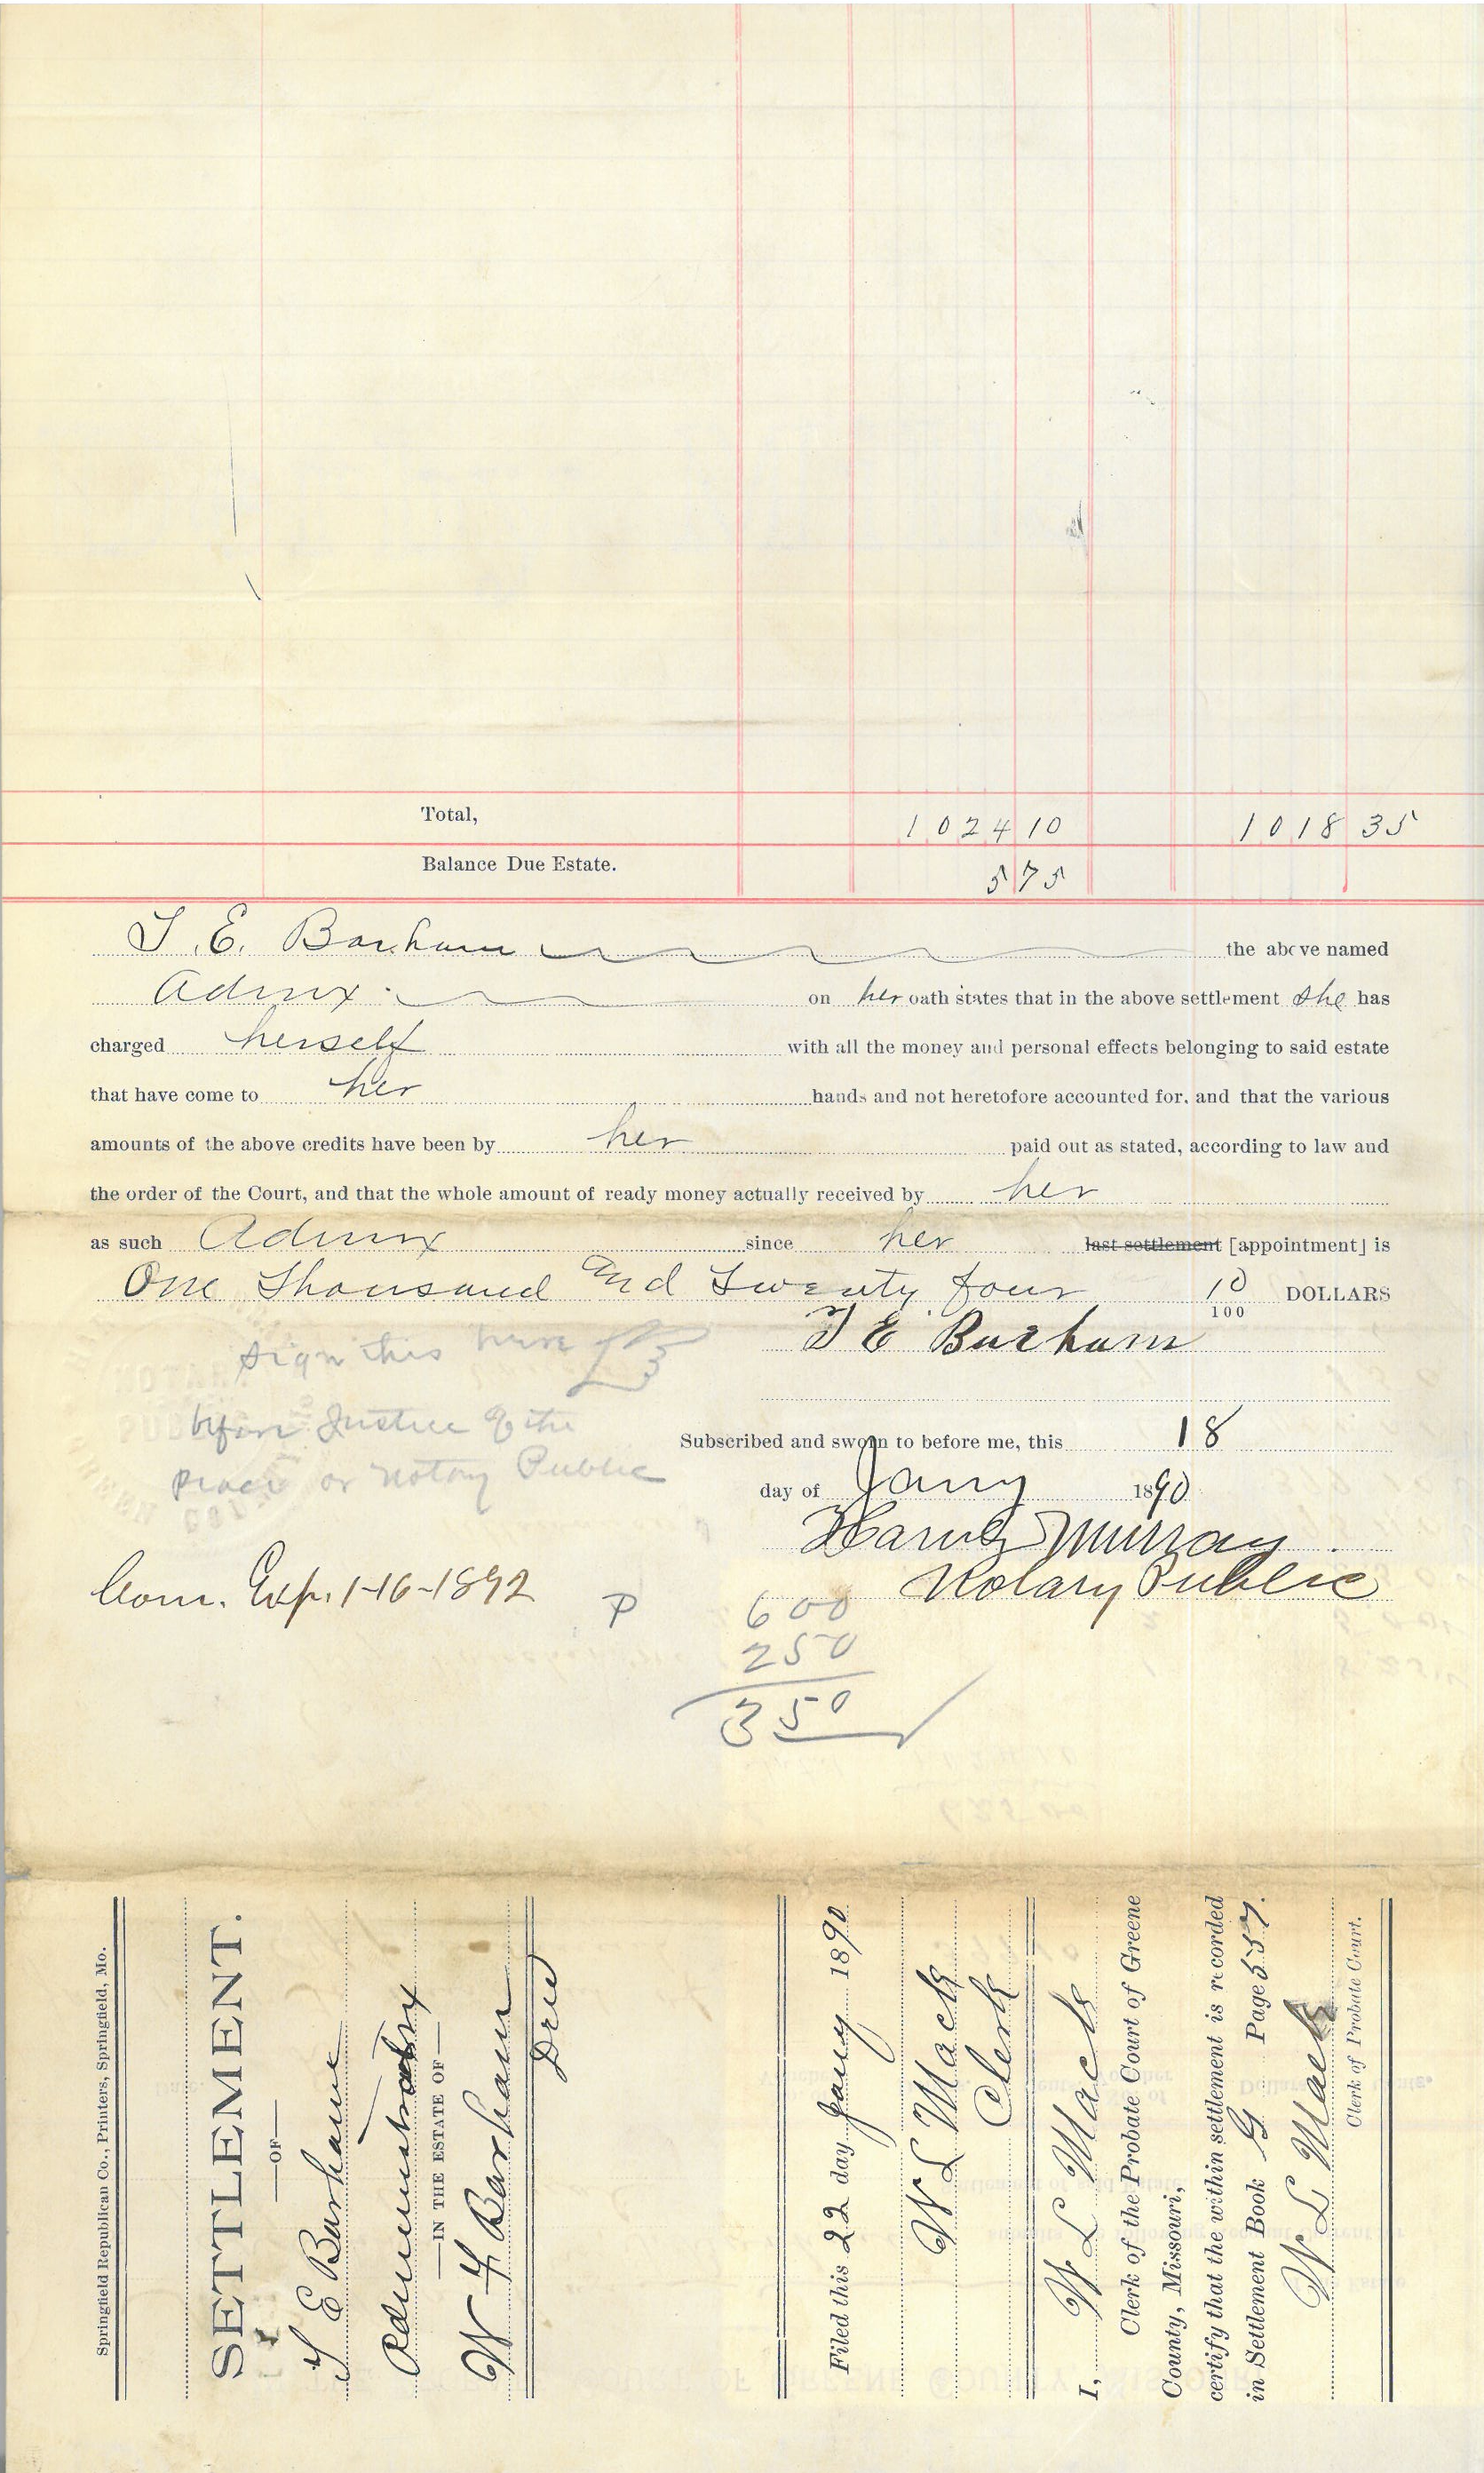 Total, 1024 10 1018 35
Balance Due Estate. 5 75
T. E. Barham the above named
Admx on her oath states that in the above settlement she has
charged herself with all the money and personal effects belonging to said estate
that have come to her hands and not heretofore accounted for, and that the various
amounts of the above credits have been by her paid out as stated, according to law and
the order of the Court, and that the whole amount of ready money actually received by her
as such Admx since her last settlement [appointment] is
One Thousand and Twenty four 10/100 DOLLARS
T E Barham
Sign this here
before Justice of the
Peace or Notary Public
Subscribed and sworn to before me, this 18
day of Jany 1890
Harvey Murray
Notary Public
Com. Exp. 1-16-1892
P
600
250
350
Springfield Republican Co., Printers, Springfield, Mo.
SETTLEMENT.
—OF—
T E Barham
Administratrix
—IN THE ESTATE OF—
W F Barham
Decd
Filed this 22 day Jany 1890
W L Mack
Clerk
I, W L Mack
Clerk of the Probate Court of Greene
County, Missouri,
certify that the within settlement is recorded
in Settlement Book G Page 557.
W L Mack
Clerk of Probate Court.